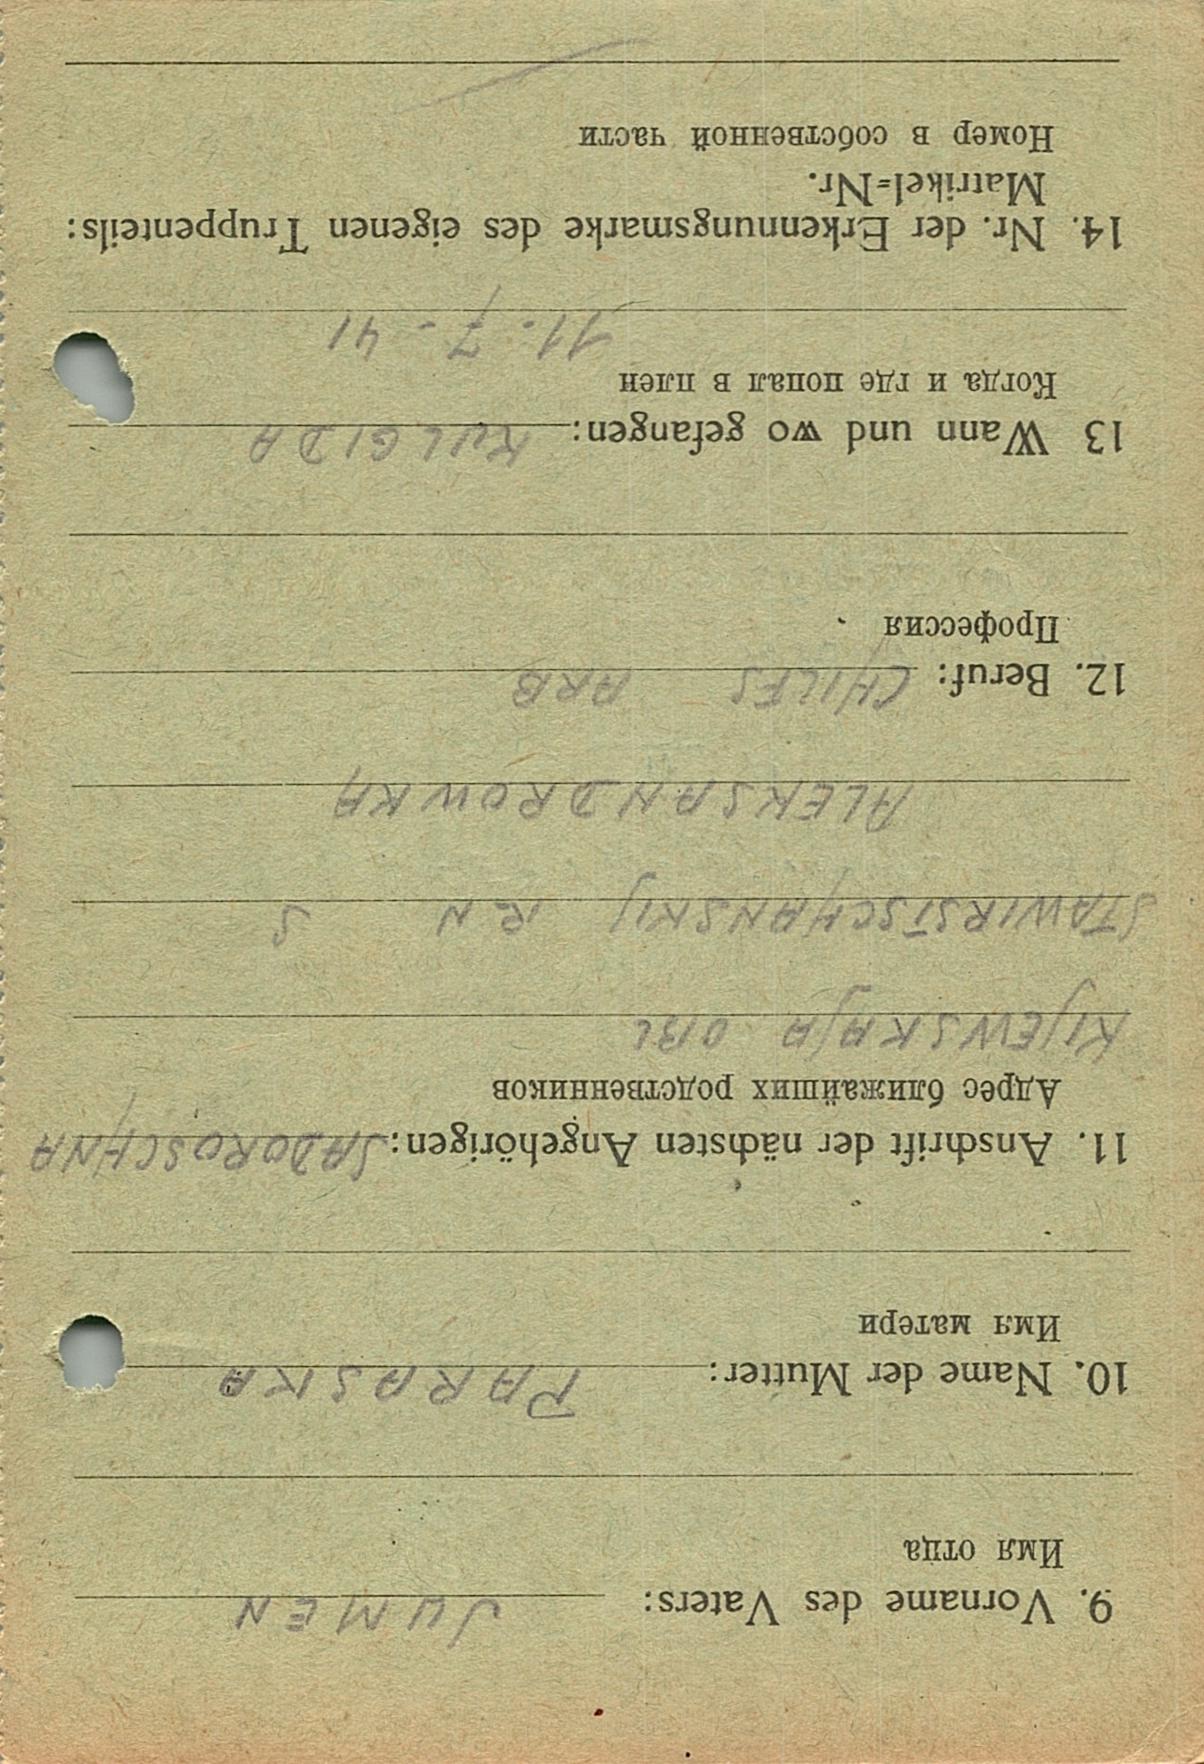 9. Vorname des Vaters: JUMEN
Имя отца
10. Name der Mutter: PARASKA
Имя матери
11. Anschrift der nächsten Angehörigen: SADOROSCHNA
Адрес ближайших родственников
KIJEWSKAJA OBL
STAWIRSTSCHANSKIJ R N S
ALEKSANDROWKA
12. Beruf: CHILFS ARB
Профессия
13 Wann und wo gefangen: KULGIDA
Когда и где попал в плен
11. - 7 - 41
14. Nr. der Erkennungsmarke des eigenen Truppenteils:
Matrikel=Nr.
Номер в собственной части